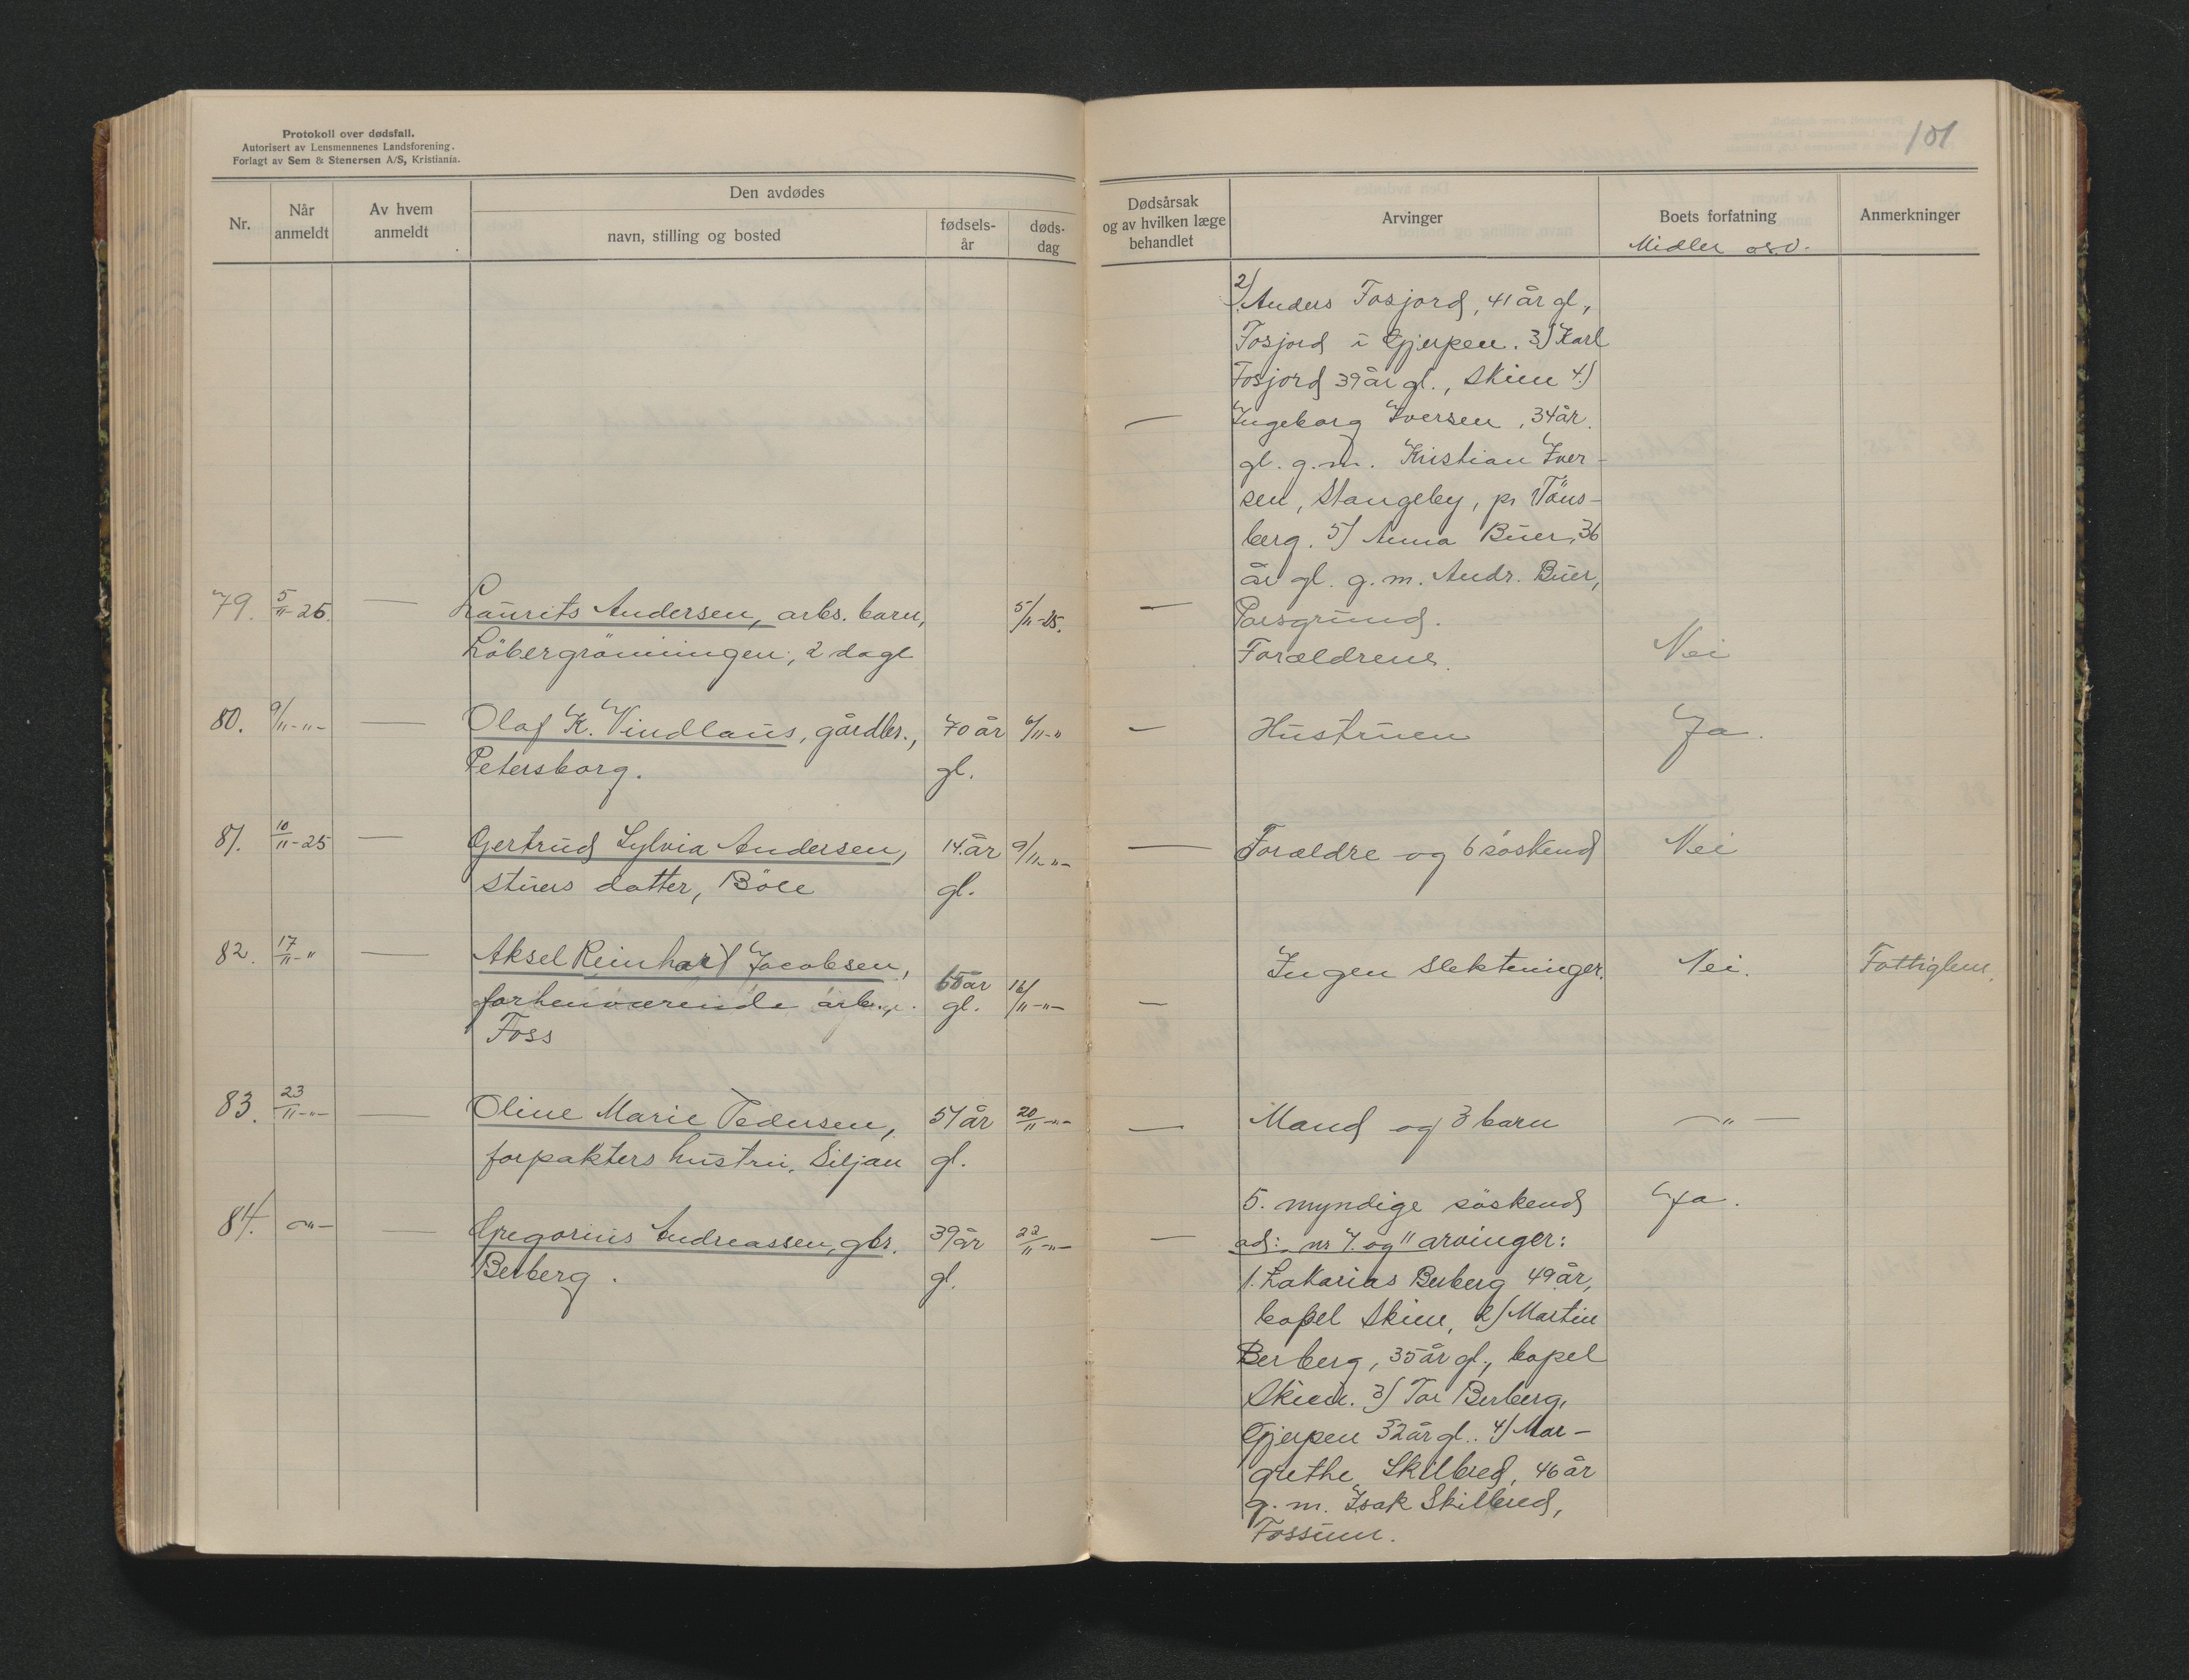 Protokoll over dødsfall.
Autorisert av Lensmennenes Landsforening.
Forlagt av Sem & Stenersen A/S, Kristiania.
101
Nr.
Når
anmeldt
Av hvem
anmeldt
Den avdødes
navn, stilling og bosted
fødsels-
år
døds-
dag
Dødsårsak
og av hvilken læge
behandlet
Arvinger
Boets forfatning
Midler osv.
Anmerkninger
2) Anders Fosjord, 41 år gl,
Fosjord i Gjerpen. 3) Karl
Fosjord 39 år gl., Skien 4)
— Ingeborg Iversen, 34 år.
gl. g.m. Kristian Iver-
sen, Stangeby, pr Töns-
berg. 5) Anna Buer, 36
år gl. g.m. Andr. Buer,
Porsgrund.
79. 5/11-25. — Laurits Andersen, arbs. barn, 5/11-25. —
Löbergrönningen, 2 dage Forældrene. Nei
80. 9/11-"- — Olaf K. Vindlaus, gårdbr., 70 år 6/11-" — Hustruen Ja.
Petersborg. gl.
81. 10/11-25 — Gertrud Sylvia Andersen, 14 år 9/11-"- — Forældre og 6 söskend Nei
stuers datter, Böle gl.
82. 17/11-" — Aksel Reinhart Jacobsen, Ingen slektninger. Nei. Fattiglem.
forhenværende arb., 65 år 16/11-"- —
Foss gl.
83. 23/11-"- — Oline Marie Pedersen, 51 år 20/11-"- — Mand og 3 barn -"-
forpakters hustru, Siljan gl.
84. -"- — Gregorius Andreassen, gbr. 39 år 22/11-"- — 5. myndige söskend Ja.
Berberg. gl.
ad: nr 4. og " arvinger:
1. Zakarias Berberg 49 år,
bopel Skien, 2) Martin
Berberg, 35 år gl., bopel
Skien. 3) Tor Berberg,
Gjerpen 32 år gl.. 4) Mar-
grethe Skilbred, 46 år
g.m. Isak Skilbred,
Fossum.